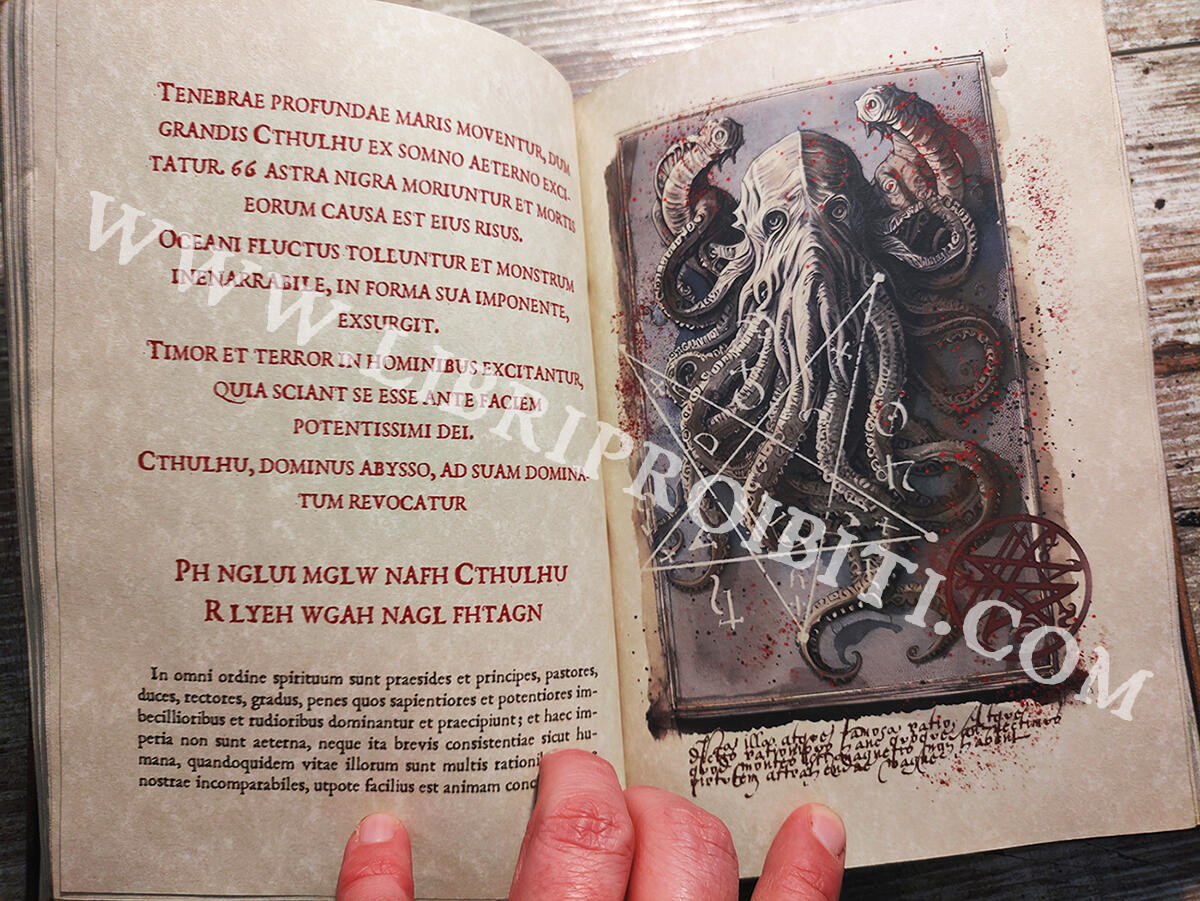 TENEBRAE PROFUNDAE MARIS MOVENTUR, DUM
GRANDIS CTHULHU EX SOMNO AETERNO EXCI-
TATUR. 66 ASTRA NIGRA MORIUNTUR ET MORTIS
EORUM CAUSA EST EIUS RISUS.
OCEANI FLUCTUS TOLLUNTUR ET MONSTRUM
INENARRABILE, IN FORMA SUA IMPONENTE,
EXSURGIT.
TIMOR ET TERROR IN HOMINIBUS EXCITANTUR,
QUIA SCIANT SE ESSE ANTE FACIEM
POTENTISSIMI DEI.
CTHULHU, DOMINUS ABYSSO, AD SUAM DOMINA-
TUM REVOCATUR
PH NGLUI MGLW NAFH CTHULHU
R LYEH WGAH NAGL FHTAGN
In omni ordine spirituum sunt praesides et principes, pastores,
duces, rectores, gradus, penes quos sapientiores et potentiores im-
becillioribus et rudioribus dominantur et praecipiunt; et haec im-
peria non sunt aeterna, neque ita brevis consistentiae sicut hu-
mana, quandoquidem vitae illorum sunt multis
nostrae incomparabiles, utpote facilius est animam
WWW.LIBRIPROIBITI.COM